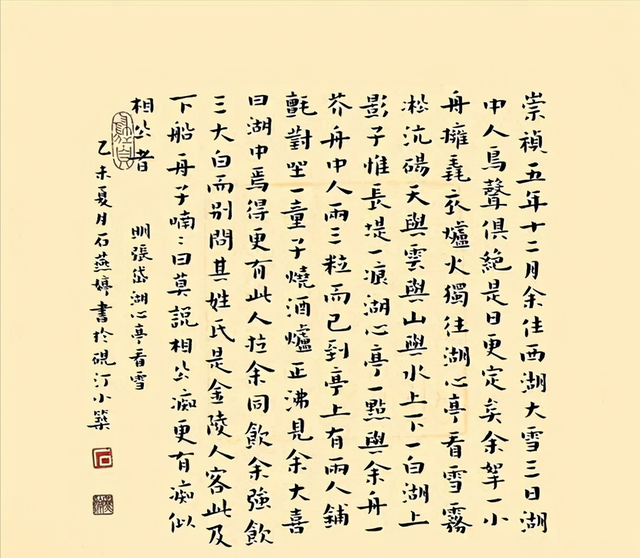 崇禎五年十二月余住西湖大雪三日湖
中人鳥聲俱絕是日更定矣余拏一小
舟擁毳衣爐火獨往湖心亭看雪霧
淞沆碭天與雲與山與水上下一白湖上
影子惟長堤一痕湖心亭一點與余舟一
芥舟中人兩三粒而已到亭上有兩人鋪
氈對坐一童子燒酒爐正沸見余大喜
曰湖中焉得更有此人拉余同飲余強飲
三大白而別問其姓氏是金陵人客此及
下船舟子喃〻曰莫說相公痴更有痴似
相公者
明張岱湖心亭看雪
乙未夏月石燕婷書於硯汀小築
石